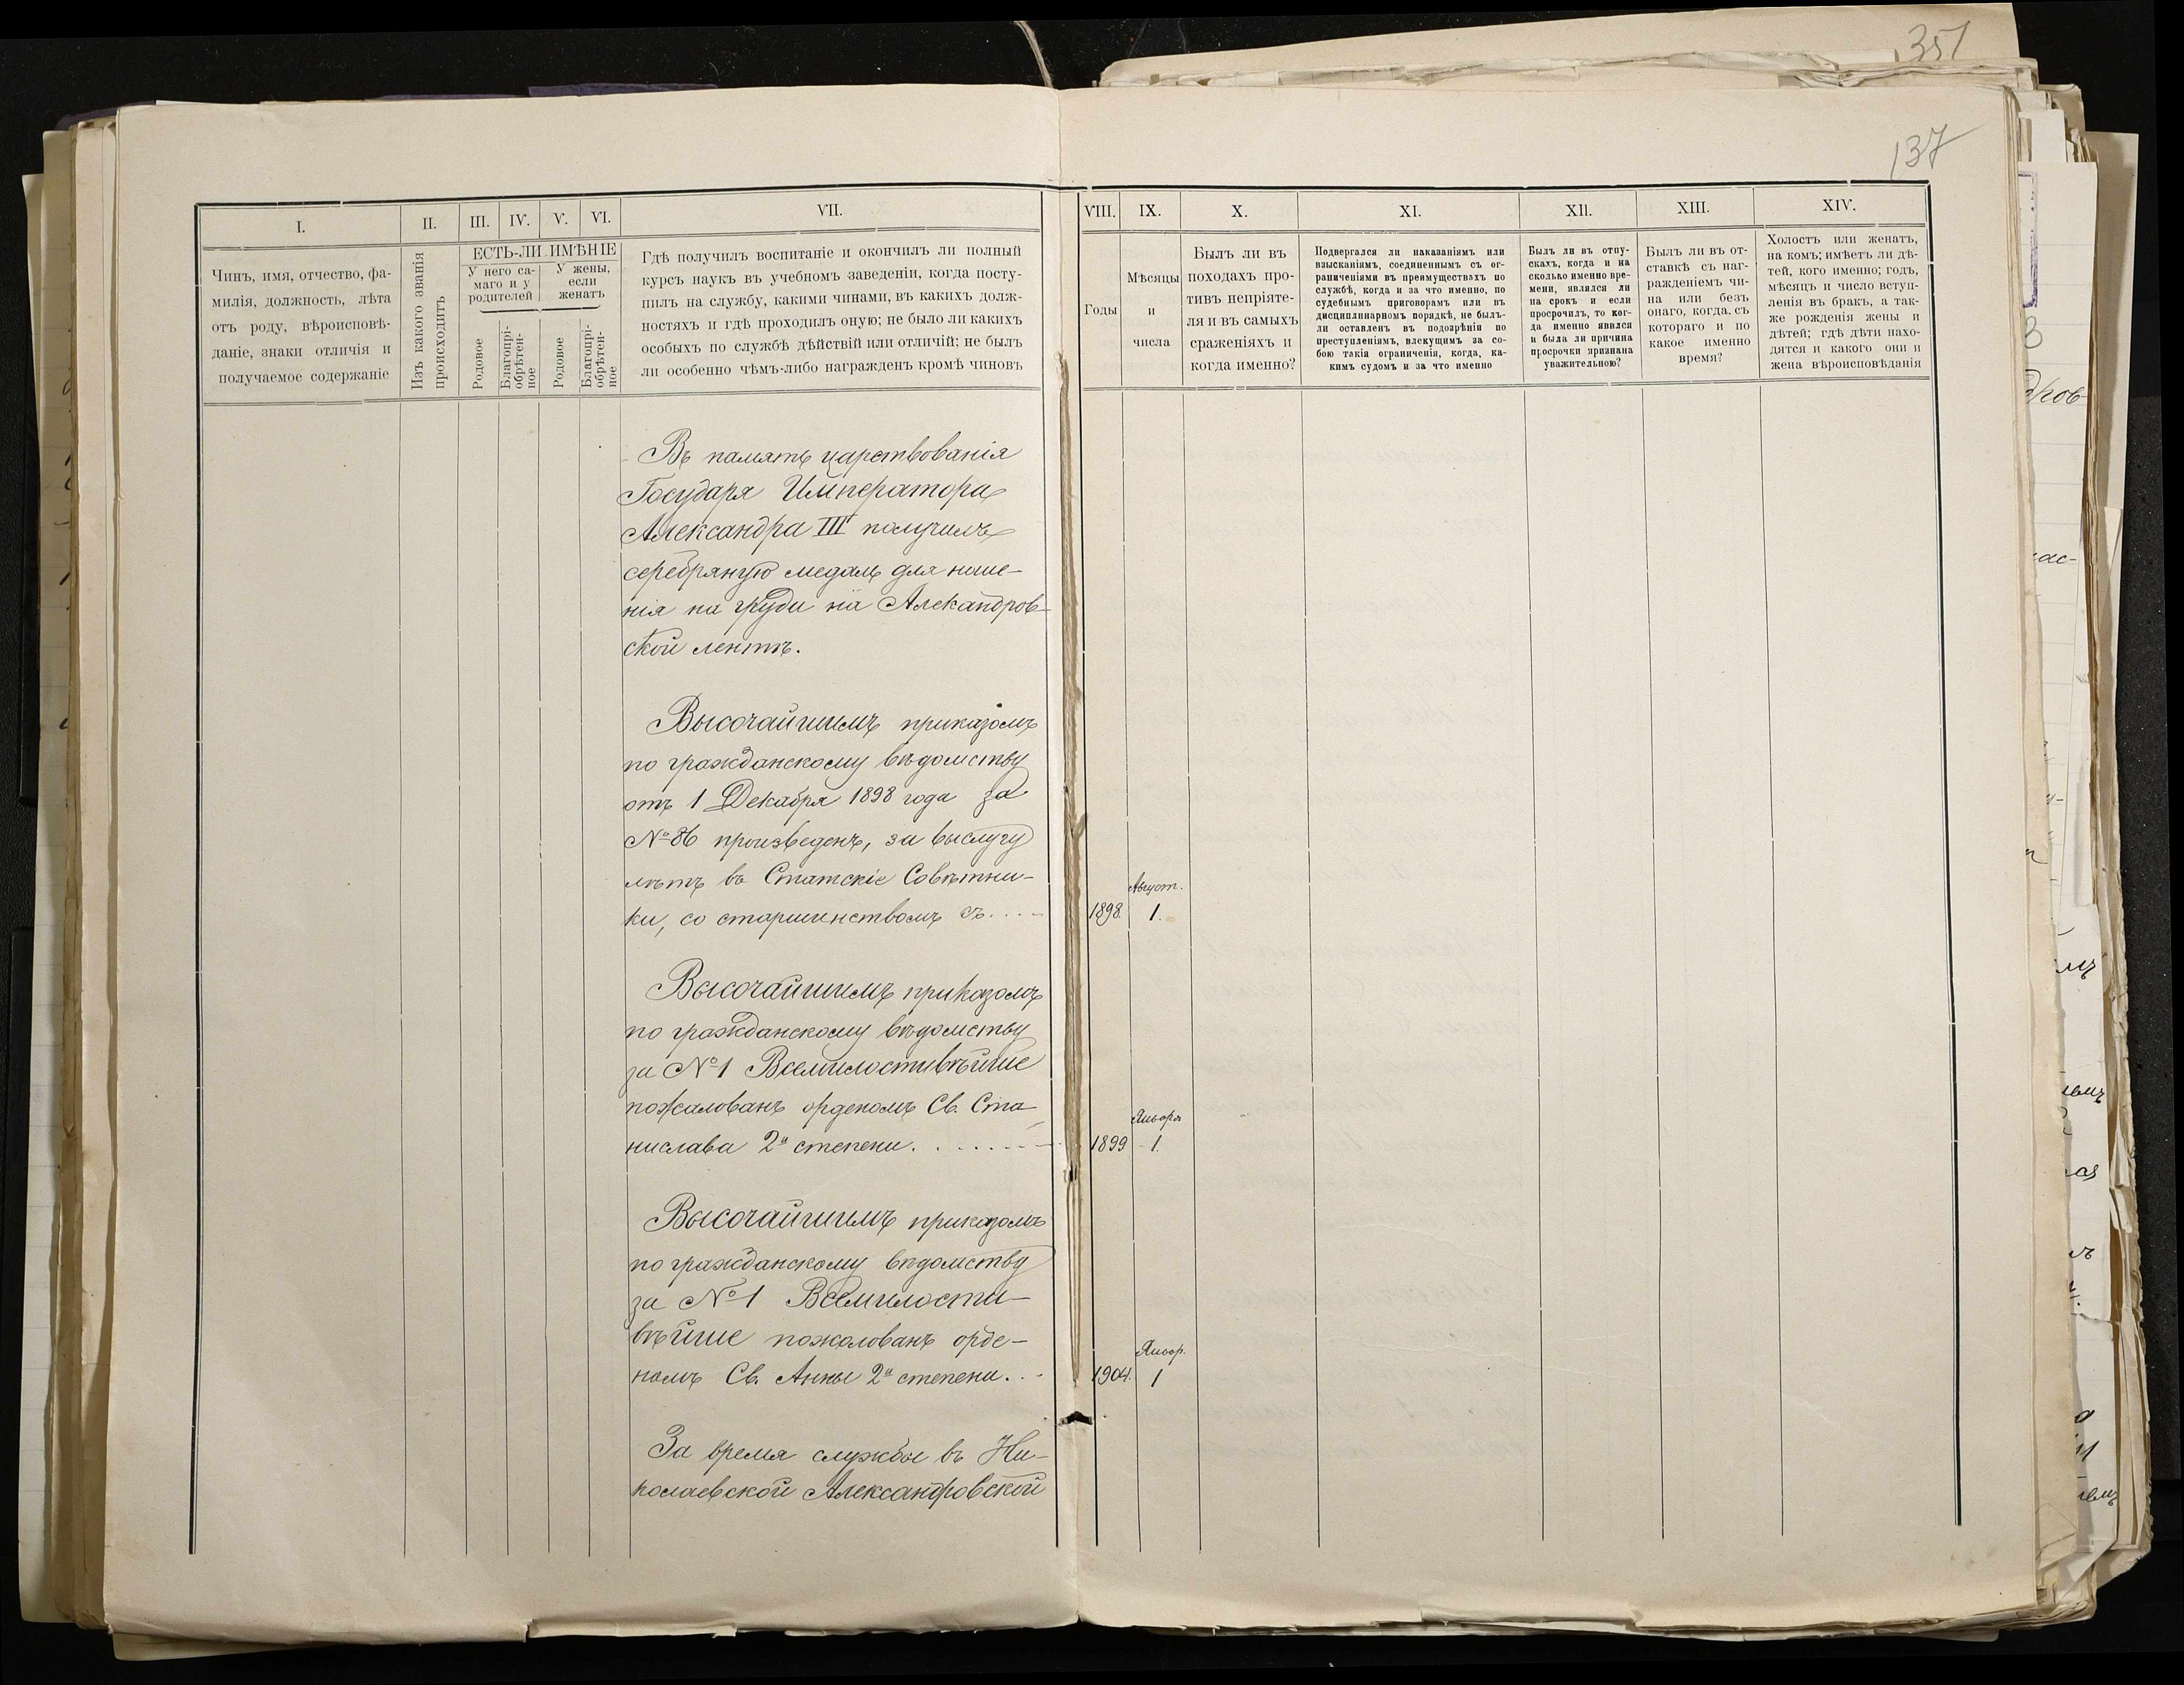 351
137
I.
II.
III.
IV.
V.
VI.
VII.
ЕСТЬ-ЛИ ИМѢНІЕ
Чинъ, имя, отчество, фа-
милія, должность, лѣта
отъ роду, вѣроисповѣ-
даніе, знаки отличія и
получаемое содержаніе
Изъ какого званія
происходитъ
У него са-
маго и у
родителей
У жены,
если
женатъ
Родовое
Благопрі-
обрѣтен-
ное
Родовое
Благопрі-
обрѣтен-
ное
Гдѣ получилъ воспитаніе и окончилъ ли полный
курсъ наукъ въ учебномъ заведеніи, когда посту-
пилъ на службу, какими чинами, въ какихъ долж-
ностяхъ и гдѣ проходилъ оную; не было ли какихъ
особыхъ по службѣ дѣйствій или отличій; не былъ
ли особенно чѣмъ-либо награжденъ кромѣ чиновъ
Въ память царствованія
Государя Императора
Александра III получилъ
серебряную медаль для ноше-
нія на груди на Алекандров-
ской лентѣ.
Высочайшимъ приказомъ
по гражданскому вѣдомству
отъ 1 Декабря 1898 года за
№ 86 произведенъ, за выслугу
лѣтъ въ Статскіе Совѣтни-
ки, со старшинствомъ съ....
Высочайшимъ приказомъ
по гражданскому вѣдомству
за № 1 Всемилостивѣйше
пожалованъ орденомъ Св. Ста-
нислава 2й степени.......
Высочайшимъ приказомъ
по гражданскому вѣдомству
за № 1 Всемилости-
вѣйше пожалованъ орде-
номъ Св. Анны 2й степени...
За время службы въ Ни-
колаевской Александровской
VIII.
IX.
X.
XI.
XII.
XIII.
XIV.
Годы
Мѣсяцы
и
числа
Былъ ли въ
походахъ про-
тивъ непріяте-
ля и въ самыхъ
сраженіяхъ и
когда именно?
Подвергался ли наказаніямъ или
взысканіямъ, соединеннымъ съ ог-
раниченіями въ преимуществахъ по
службѣ, когда и за что именно, по
судебнымъ приговорамъ или въ
дисциплинарномъ порядкѣ, не былъ-
ли оставленъ въ подозрѣніи по
преступленіямъ, влекущимъ за со-
бою такія ограниченія, когда, ка-
кимъ судомъ и за что именно
Былъ ли въ отпу-
скахъ, когда и на
сколько именно вре-
мени, явился ли
на срокъ и если
просрочилъ, то ког-
да именно явился
и была ли причина
просрочки признана
уважительною?
Былъ ли въ от-
ставкѣ съ наг-
ражденіемъ чи-
на или безъ
онаго, когда, съ
котораго и по
какое именно
время?
Холостъ или женатъ,
на комъ; имѣетъ ли дѣ-
тей, кого именно; годъ,
мѣсяцъ и число вступ-
ленія въ бракъ, а так-
же рожденія жены и
дѣтей; гдѣ дѣти нахо-
дятся и какого они и
жена вѣроисповѣданія
Август.
1898. 1.
Января
1899 1.
Январ.
1904. 1